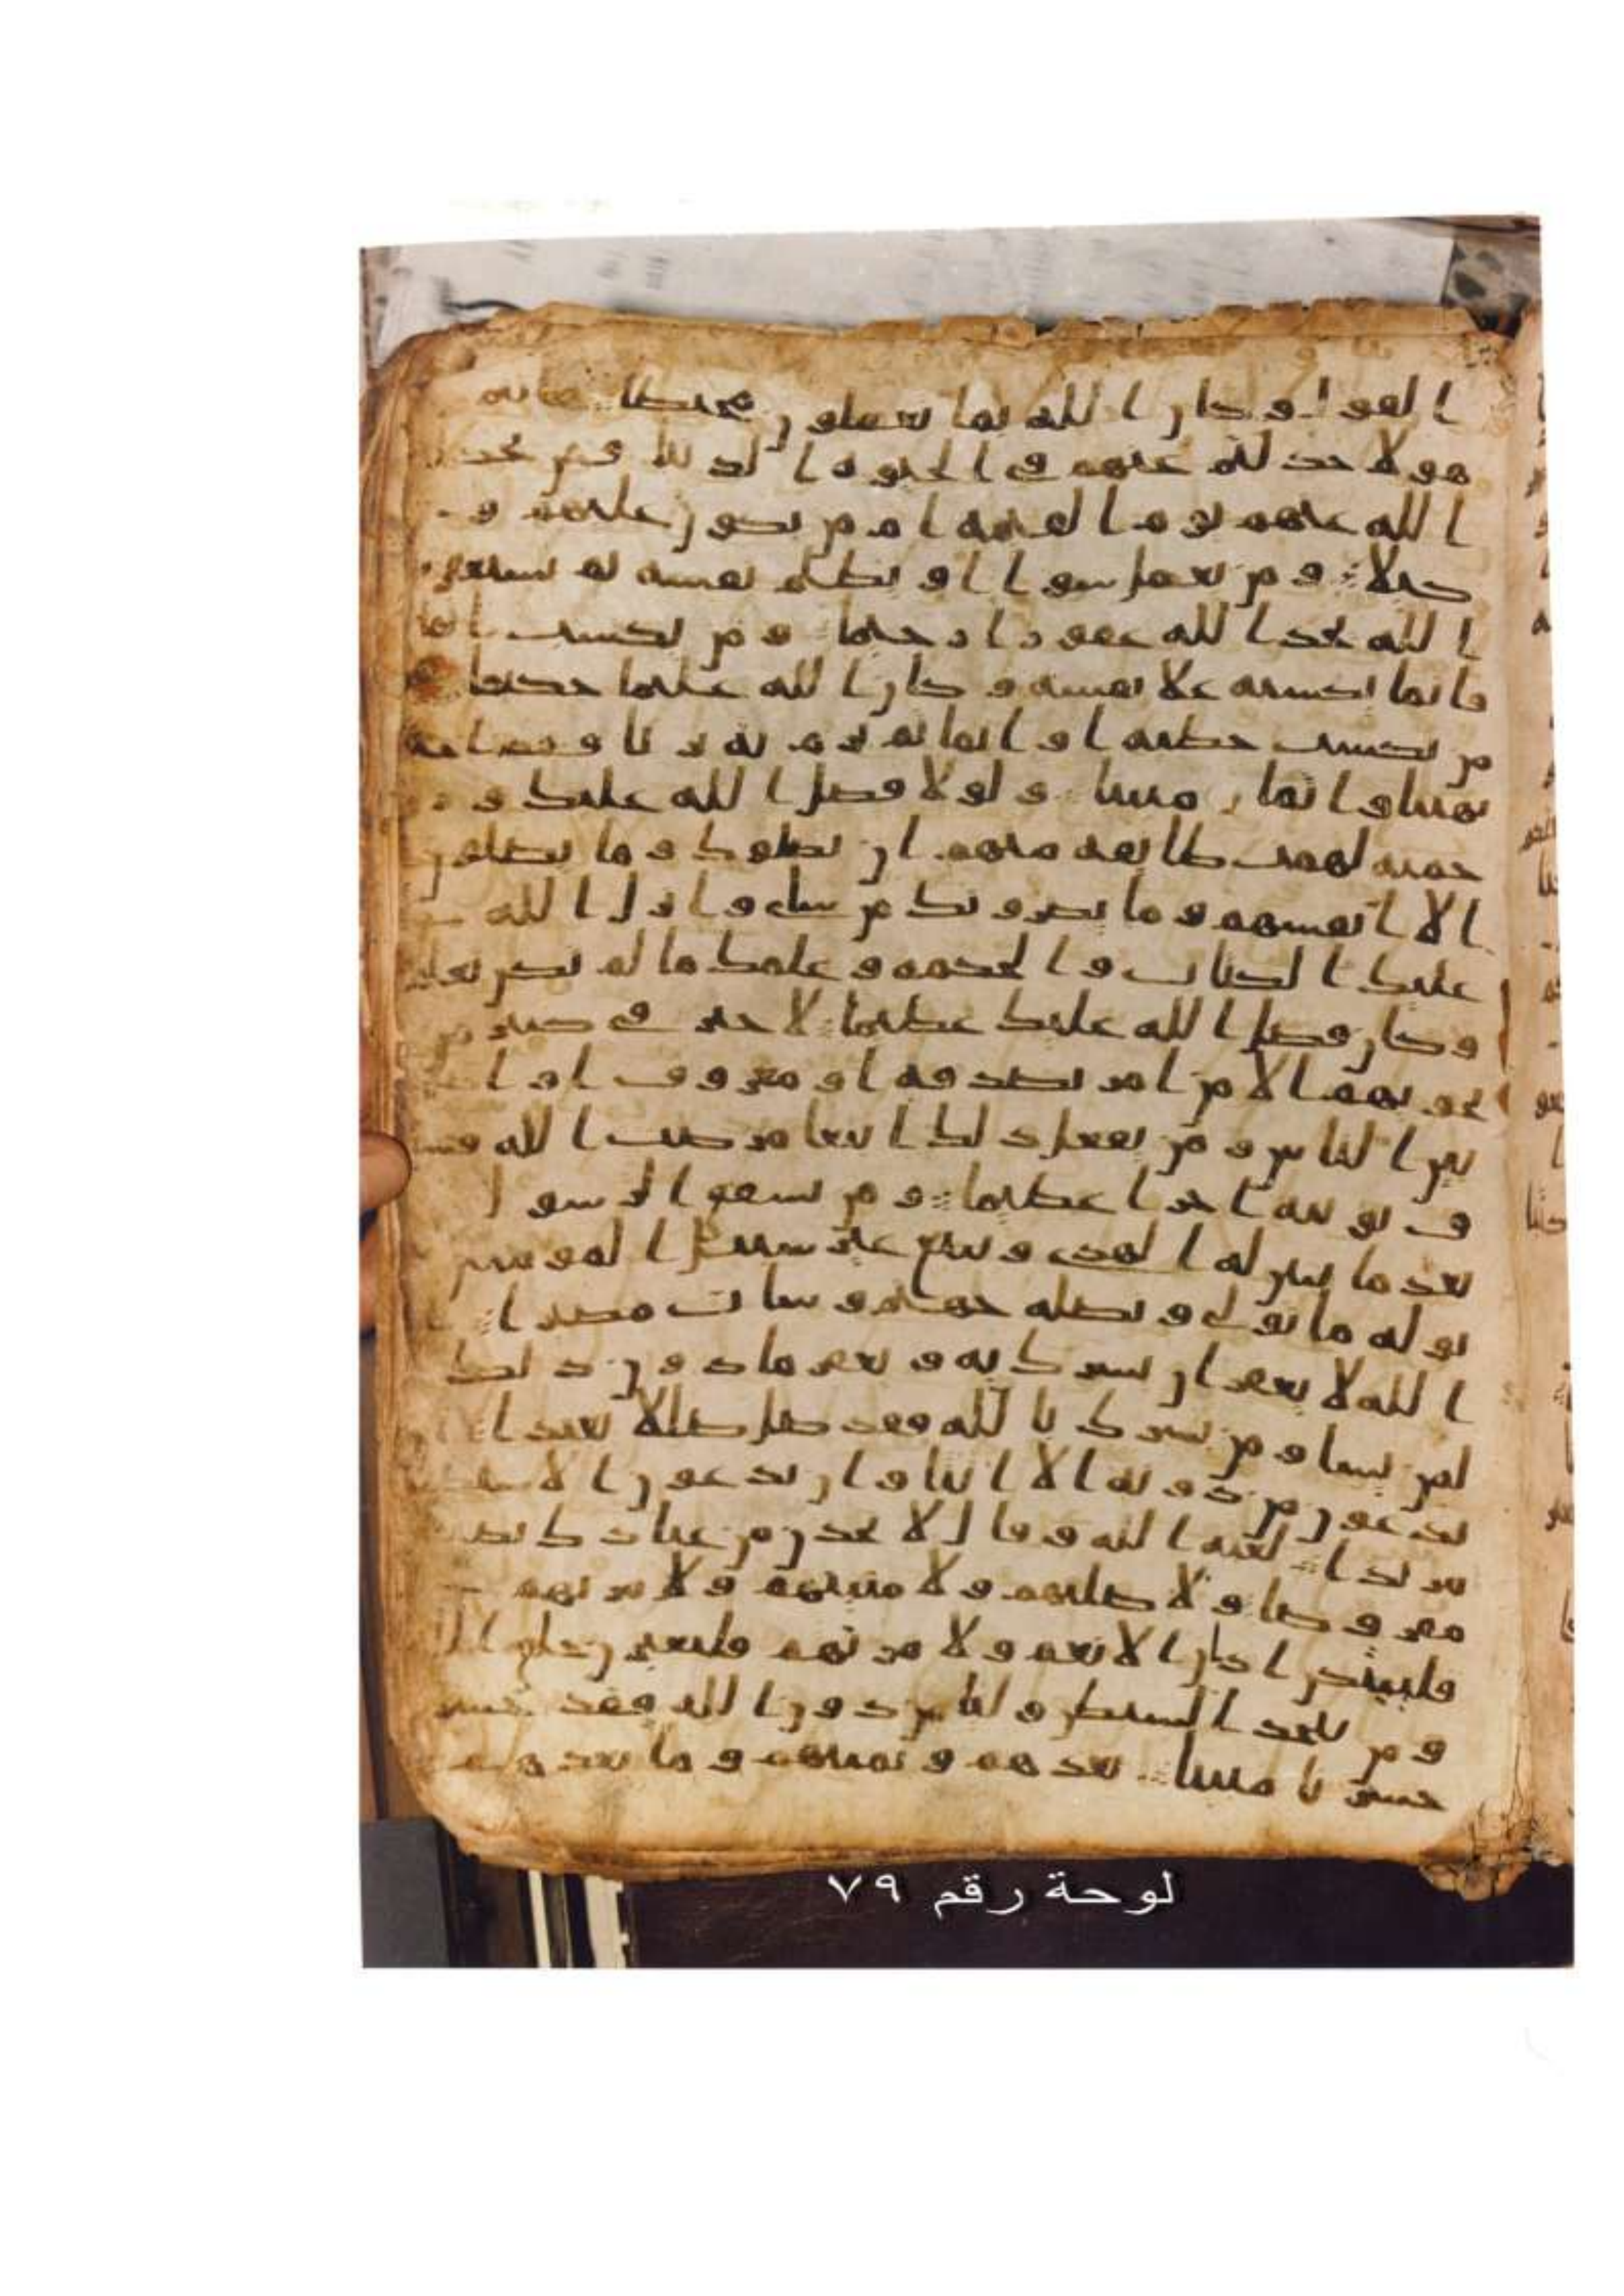 القول وكان الله بما تعملون محيطا هانتم
هولا جدلتم عنهم في الحيوة الدنيا فمن يجدل
الله عنهم يوم القيمة ام من يكون عليهم و
كيلا ومن يعمل سوا او يظلم نفسه ثم يستغفر
الله يجد الله غفورا رحيما ومن يكسب اثما
فانما يكسبه علا نفسه وكان الله عليما حكيما
من يكسب خطية او اثما ثم يرم به بريا فقد احتمل
بهتنا واثما مبينا ولولا فضل الله عليك ور
حمته لهمت طايفة منهم ان يضلوك وما يضلون
الا انفسهم وما يضرونك من شاي وانزل الله
عليك الكتاب والحكمة وعلمك ما لم تكن تعلم
وكان فضل الله عليك عظيما لا خير في كثير من
نجويهم الا من امر بصدقة او معروف او
بين الناس ومن يفعل ذلك ابتغا مرضت الله فسو
ف نوتيه اجرا عظيما ومن يشقق الرسول
بعد ما تبين له الهدى ويتبع غير سبيل المومنين
نوله ما تولى ونصله جهنم وسات مصيرا
الله لا يغفر ان يشرك به ويغفر ما دون ذلك
لمن يشا ومن يشرك بالله فقد ضل ضللا بعيدا
يدعون من دونه الا انثا وان يدعون الا شيطنا
مريدا لعنه الله وقال لا تخذن من عبادك نصيبا
مفروضا ولاضلنهم ولامنينهم ولامرنهم
فليبتكن اذان الانعم ولامرنهم فليغيرن خلق الله
ومن يتخذ الشيطن وليا من دون الله فقد خسر
خسرنا مبينا يعدهم ويمنيهم وما يعدهم
لوحة رقم ٧٩